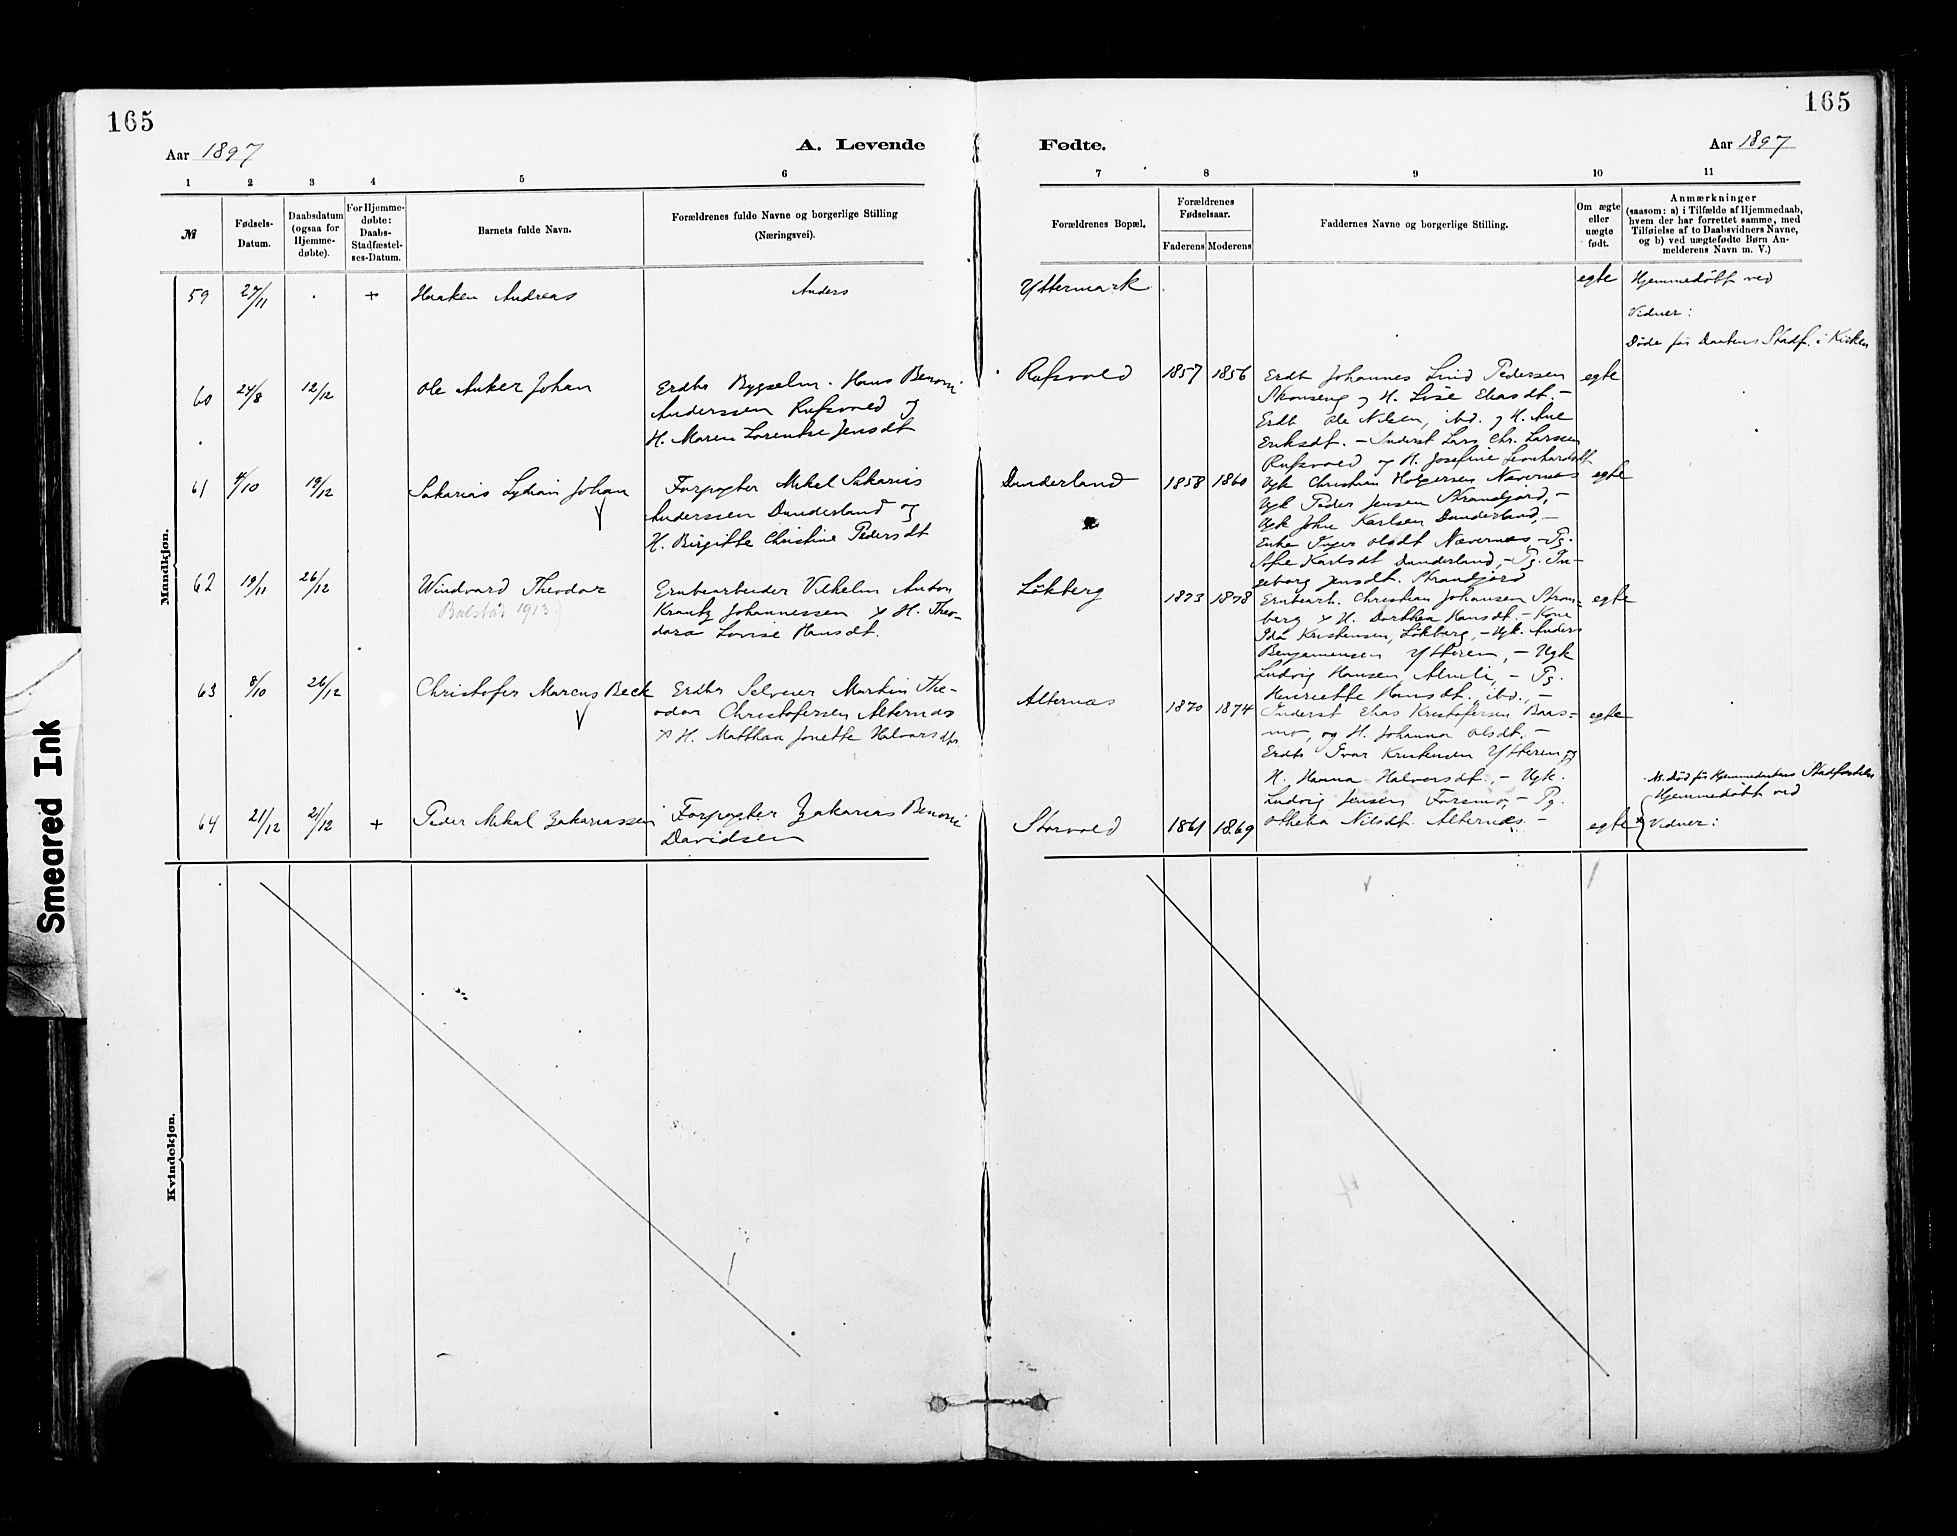 165
165
Aar 1897
A. Levende
Fødte.
Aar 1897
1 2 3 4 5 6 7 8 9 10 11
№
Fødsels-Datum.
Daabsdatum (ogsaa for Hjemme-døbte).
For Hjemme-døbte: Daabs-Stadfæstel-ses-Datum.
Barnets fulde Navn.
Forældrenes fulde Navne og borgerlige Stilling
(Næringsvei).
Forældrenes Bopæl.
Forældrenes Fødselsaar.
Faderens Moderens
Faddernes Navne og borgerlige Stilling.
Om ægte eller uægte født.
Anmærkninger
(saasom: a) i Tilfælde af Hjemmedaab,
hvem der har forrettet samme, med
Tilføielse af to Daabsvidners Navne,
og b) ved uægtefødte Børn An-
melderens Navn m. V.)
Mandkjøn.
59 27/11 + Haaken Andreas Anders Yttermark egte Hjemmedöbt ved
Vidner:
Döde før Daabens Stadf. i Kirken
60 24/8 12/12 Ole Anker Johan
Erdbr Bygselm. Hans Benoni
Anderssen Rufsvold og
H. Maren Lorentse Jensdt
Rufsvold 1857 1856
Erdb Johannes Lind Pedersen
Skonseng og H. Lise Eliasdt. -
Erdb Ole Nilsen, ibd. og H. Ane
Eriksdt. - Inderst Lars Chr. Larssen
Rufsvold og H. Josefine Leonhardsdt
egte
61 4/10 19/12 Sakarias Lydian Johan
Forpagter Mikal Sakarias
Anderssen Dunderland og
H. Birgitte Christine Pedersdt
Dunderland 1858 1860
Ugk Christian Holgersen Nævernes
Ugk Peder Jensen Strandjord, -
Ugk John Karlsen Dunderland, -
Enke Inger Olsdt Nævernes - Pg.
Sofie Karlsdt Dunderland, - Pg. In-
geborg Jensdt. Strandjord
egte
62 19/11 26/12 Windvard Theodor
(Balstad 1913)
Grubearbeider Vilhelm Anton
Krantz Johannessen & H. Theo-
dora Lovise Hansdt.
Lökberg 1873 1878
Grubearb. Christian Johansen Strøm-
berg & H. Dorthea Hansdt. - Kone
Ida Kristensen, Lökberg, - Ugk. Anders
Benjaminsen Ytteren, - Ugk
Ludvig Hansen, Almli, - Pg.
Henriette Hansdt. ibd. -
egte
63 8/10 26/12 Christofer Marcus Beck
Erdbr Selveier Martin The-
odor Christofersen Alternæs
& H. Matthea Jonette Halvorsdtr.
Alternæs 1870 1874
Inderst Elias Kristofersen Baas-
mo, og H. Johanna Olsdt. -
Erdbr Ivar Kristensen Ytteren og
H. Hanna Halvorsdt., - Ugk.
Ludvig Jensen Forsmo, - Pg.
Othelia Nilsdt. Alternæs. -
egte
64 21/12 21/12 + Peder Mikal Zakariassen
Forpagter Zakarias Benoni
Davidsen
Storvold 1861 1869
egte
Död før Hjemmedaabens Stadfæstelse
Hjemmedöbt ved
Vidner:
Kvindekjøn.
Smeared Ink